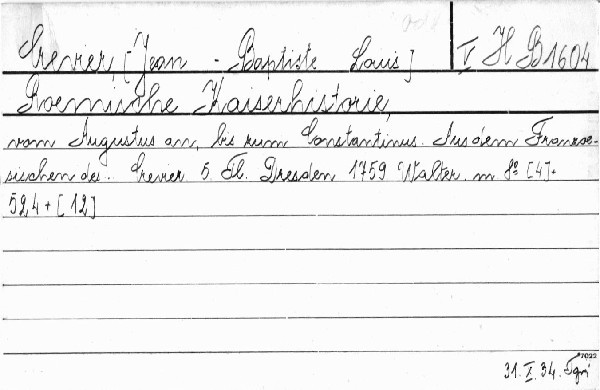 Crevier, [Jean - Baptiste Louis] V H B1604
Roemische Kaiserhistorie,
vom Augustus an, bis zum Constantinus. Aus dem Franzoe-
sischen des.. Crevier 5. Th. Dresden 1759 Walter. m 8° [4]+
524 + [12]
7022
31. I. 34.